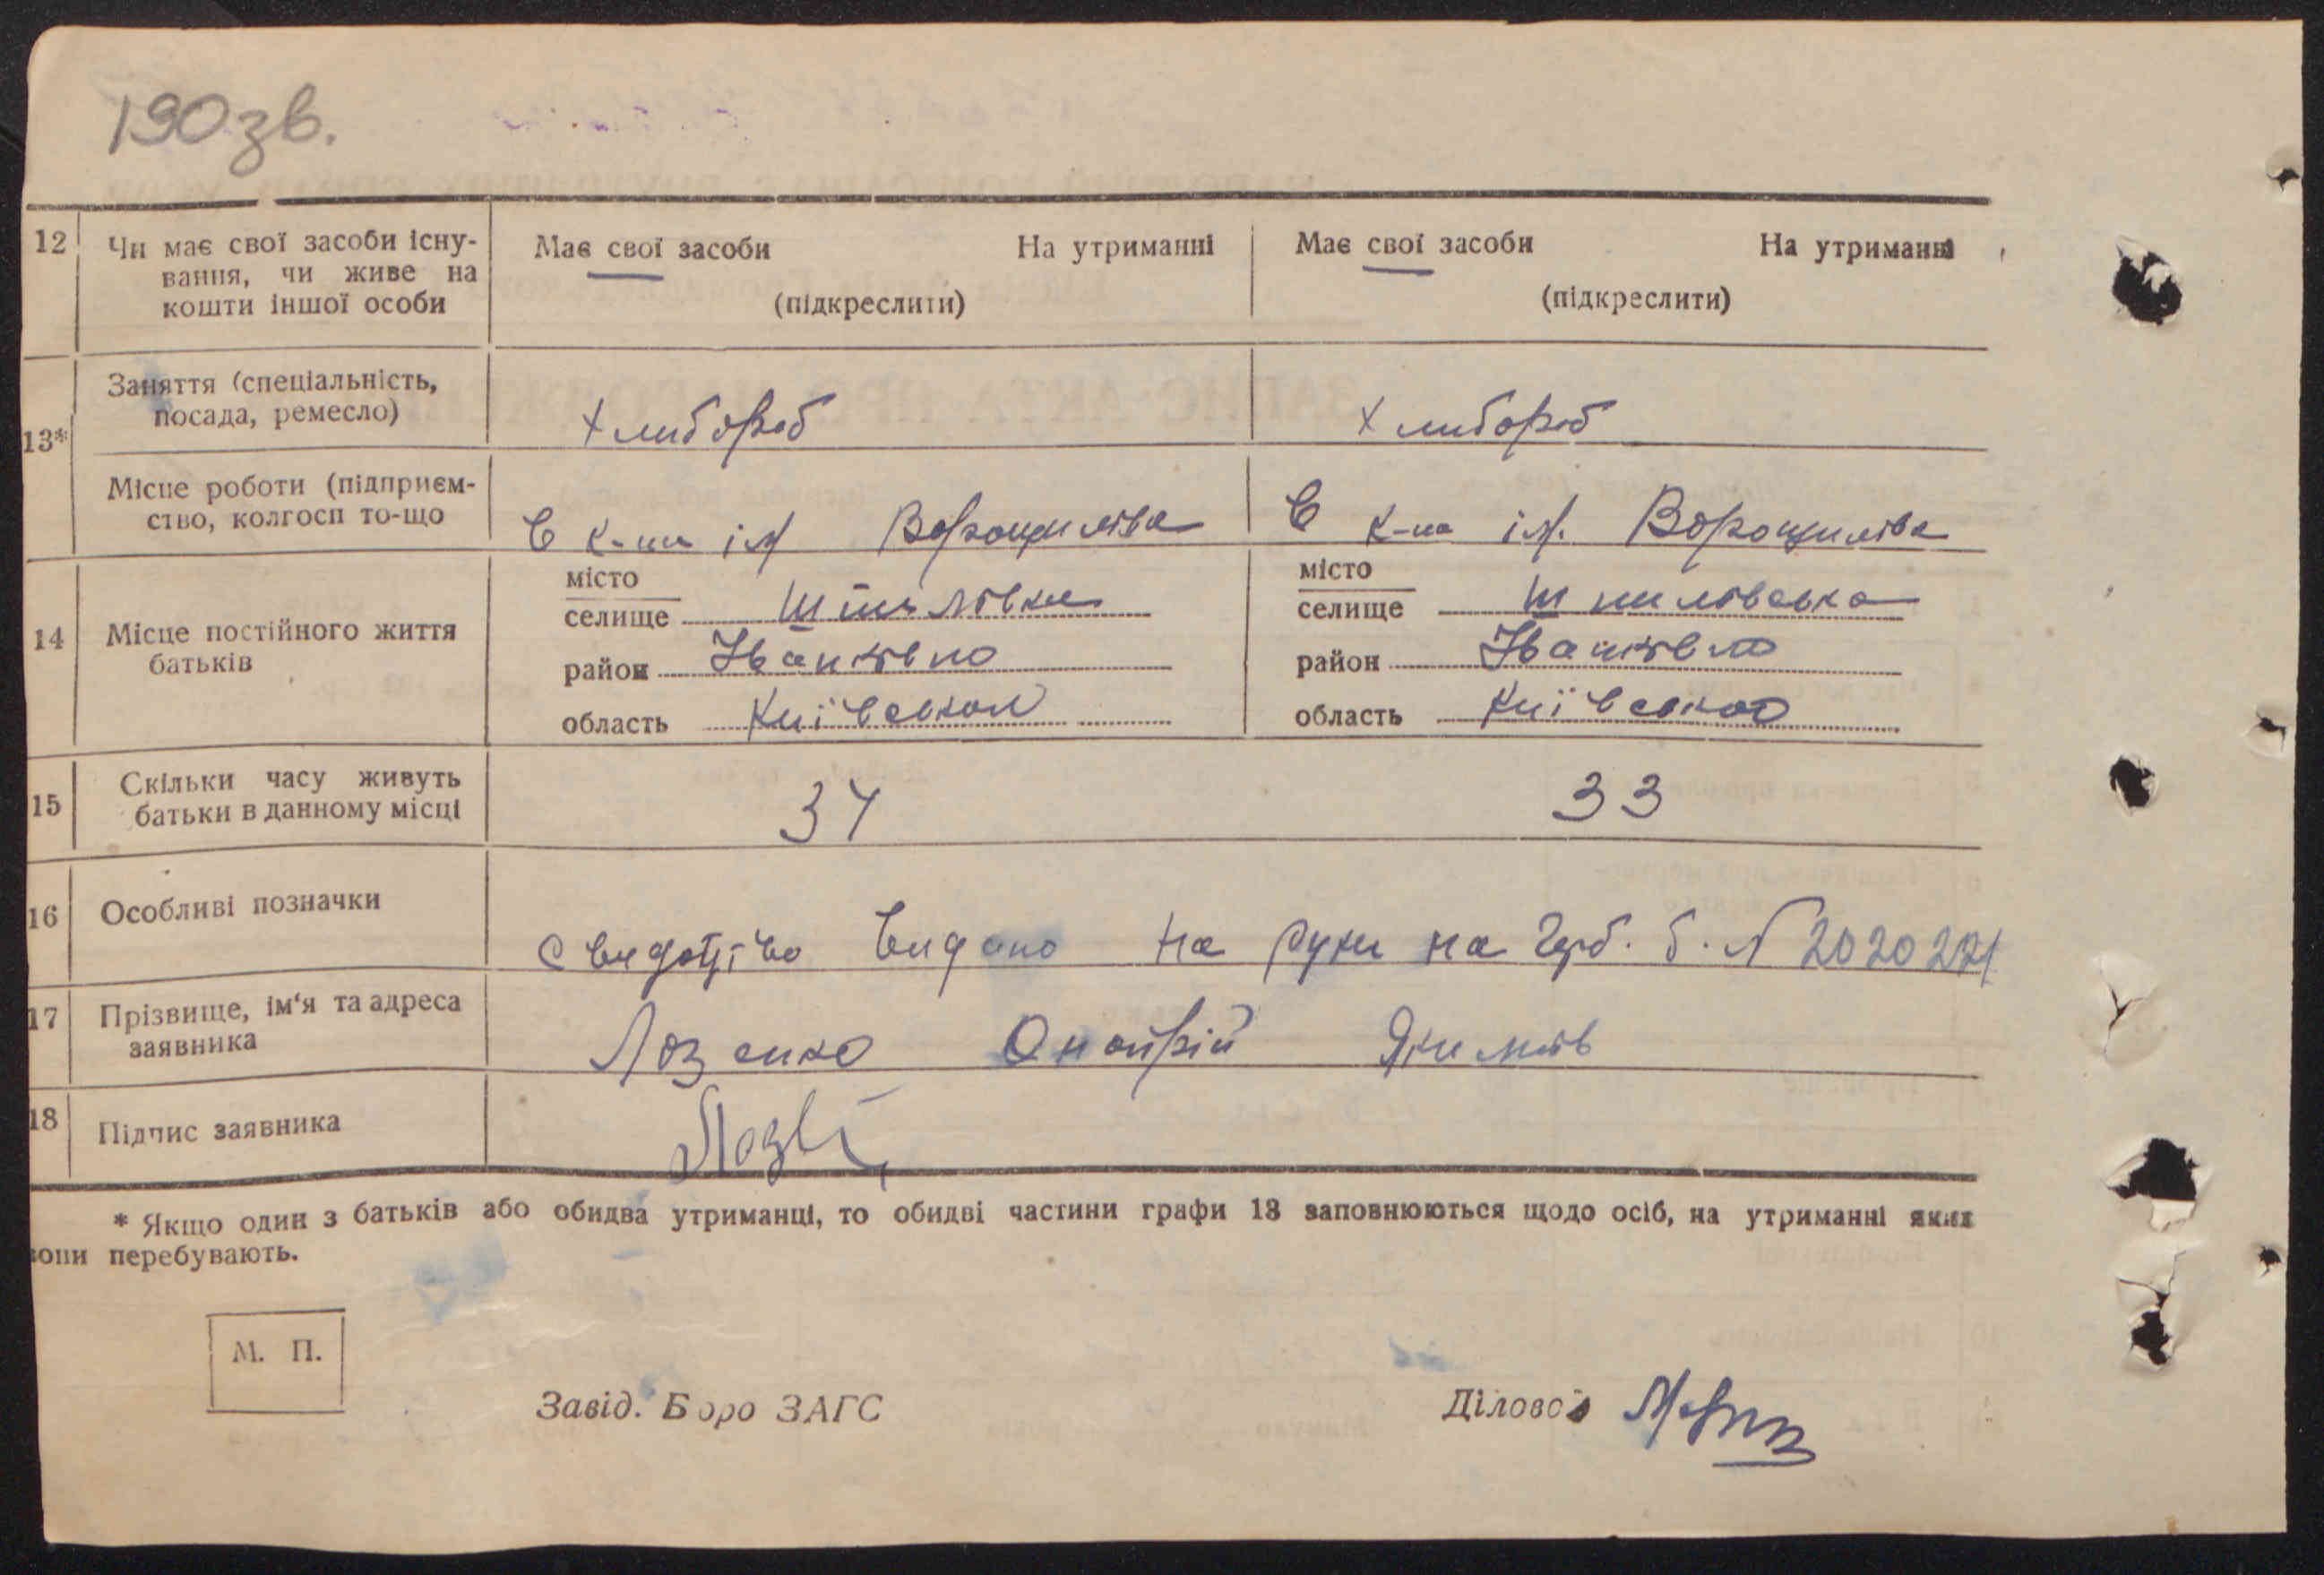 190 зв.
12 Чи має свої засоби існування, чи живе на кошти іншої особи
Має свої засоби На утриманні Має свої засоби На утриманні
(підкреслити) (підкреслити)
13* Заняття (спеціальність,
посада, ремесло) Хлибороб Хлибороб
Місце роботи (підприєм-
ство, колгосп то-що В к- ім Ворошиліва В к- ім. Ворошиліва
місто місто
14 Місце постійного життя селище селище
батьків район район
область Київськой область Київською
15 Скільки часу живуть
батьки в данному місці 34 33
16 Особливі позначки
видано на руки на герб. б. №
17 Прізвище, ім'я та адреса
заявника Лозенко Онопрій Якимів
18 Підпис заявника
* Якщо один з батьків або обидва утриманці, то обидві частини графи 13 заповнюються щодо осіб, на утриманні яких
вони перебувають.
М. П.
Завід. Бюро ЗАГС Діловод